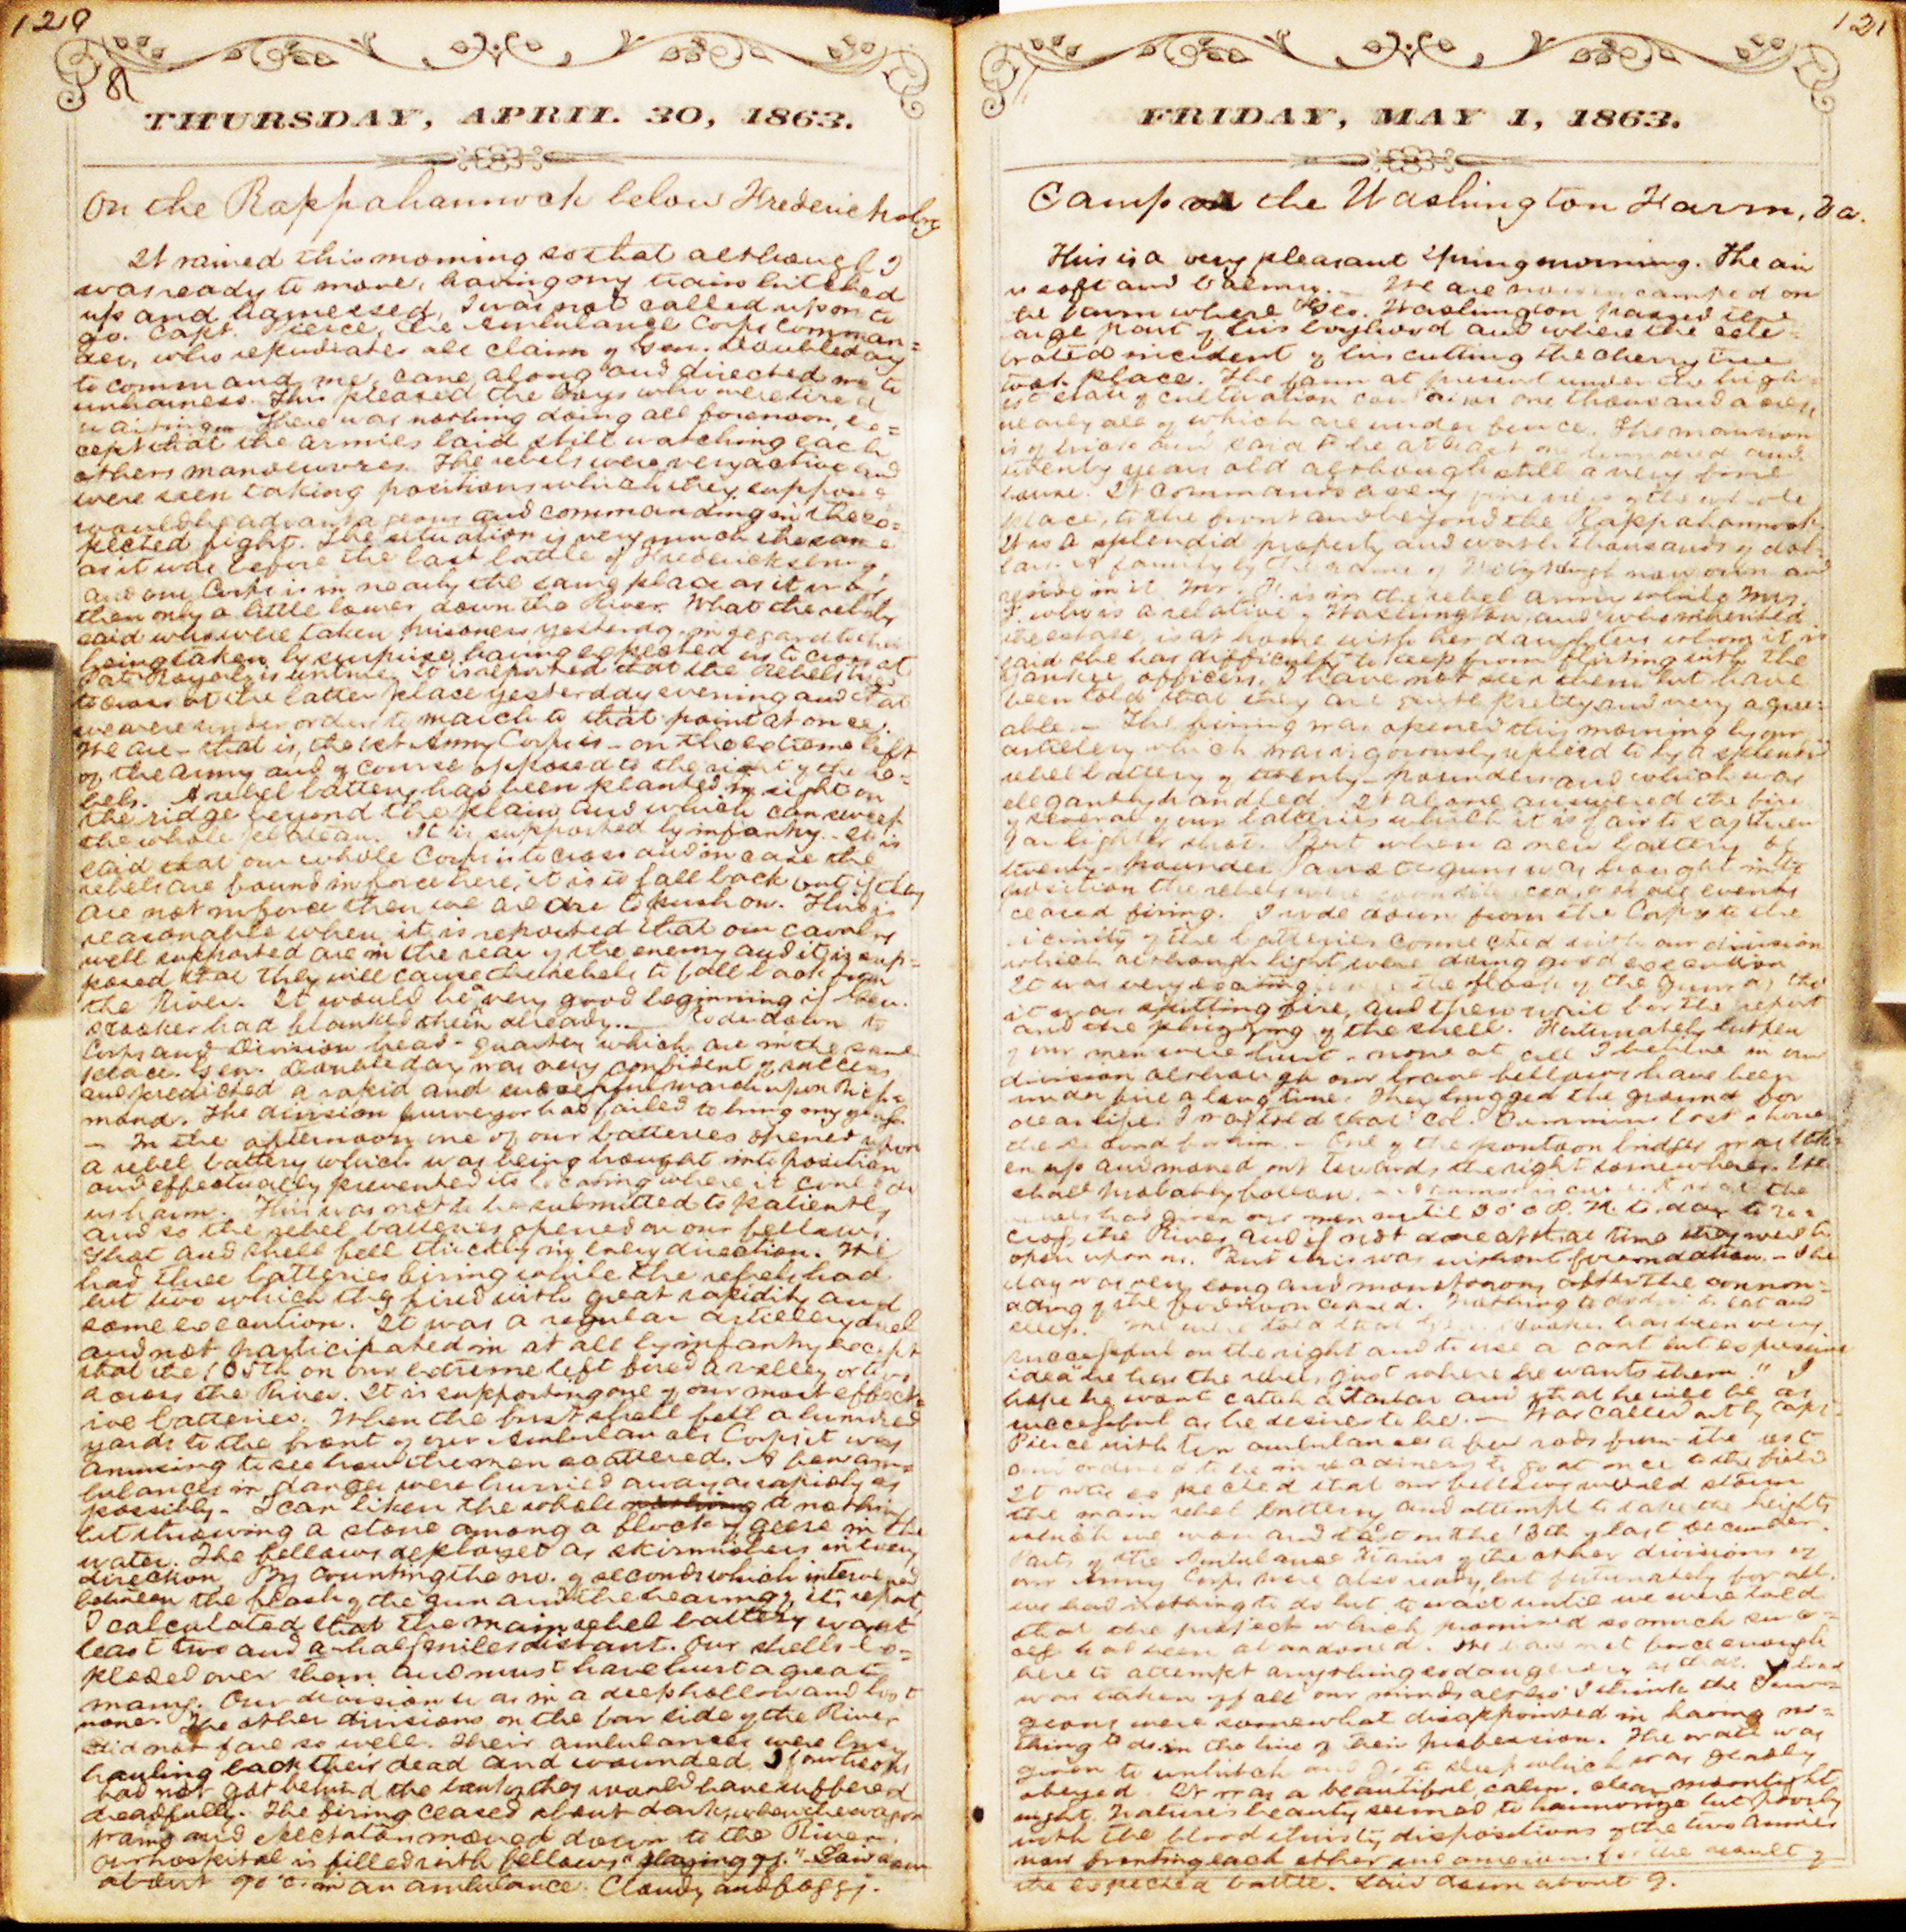 120
THURSDAY, APRIL 30, 1863.
On the Rappahannock below Fredericksbg
It rained this morning so that although I
was ready to move, having my train hitched
up and harnessed, I was not called upon to
go. Capt. Pierce, the Ambulance Corps comman=
der, who repudiates all claim of Gen. Doubleday
to command me, came along and directed me to
unharness. This pleased the boys who were tired
waiting. There was nothing doing all forenoon, ex=
cept that the armies laid still watching each
others manoeuvres. The rebels were very active and
were seen taking positions which they suppose
would be advantageous and commanding in the ex=
pected fight. The situation is very much the same
as it was before the last battle of Fredericksburg,
and our Corps is in nearly the same place as it was
then only a little lower down the River. What the rebels
said who were taken prisoners yesterday in regard to their
being taken by surprise, having expected us to cross at
Port Royal, is untrue. It is reported that the Rebels tried
to cross at the latter place yesterday evening and that
we were under orders to march to that point at once.
We are - that is, the 1st Army Corps is - on the extreme left
of the army and of course opposed to the right of the re=
bels. A rebel battery has been planted in sight on
the ridge beyond the plain and which can sweep
the whole plateau. It is supported by infantry. It is
said that our whole Corps is to cross and in case the
rebels are found in force there, it is to fall back but if they
are not in force then we are to push on. This is
reasonable when it is reported that our cavalry
well supported are in the rear of the enemy and it is sup=
posed that they will cause the rebels to fall back from
the River. It would be a very good beginning if Gen.
Hooker had flanked them already. Rode down to
Corps and Division head-quarters which are in the same
place. Gen. Doubleday was very confident of success
and predicted a rapid and successful march upon Rich=
mond. The division purveyor had failed to bring my goods.
- In the afternoon one of our batteries opened upon
a rebel battery which was being brought into position
and effectually prevented its locating where it could do
us harm. This was not to be submitted to patiently
and so the rebel batteries opened on our fellows.
Shot and shell fell thickly in every direction. We
had three batteries firing while the rebels had
but two which they fired with great rapidity and
some execution. It was a regular artillery duel
and not participated in at all by infantry except
that the 105th on our extreme left fired a volley or two
across the River. It is supporting one of our most effect=
ive batteries. When the first shell fell a hundred
yards to the front of our Ambulance Corps it was
amusing to see how the men scattered. A few am=
bulances in danger were hurried away as rapidly as
possible. I can liken the whole nothing to nothing
but throwing a stone among a flock of geese in the
water. The fellows deployed as skirmishers in every
direction. By counting the no. of seconds which intervened
between the flash of the gun and the hearing of its report,
I calculated that the main rebel battery was at
least two and a half miles distant. Our shells ex=
ploded over them and must have hurt a great
many. Our division was in a deep hollow and lost
none. The other divisions on the far side of the River
did not fare so well. Their ambulances were busy
hauling back their dead and wounded. If our troops
had not got behind the banks they would have suffered
dreadfully. The firing ceased about dark, when the wagon
trains and spectators moved down to the River.
Our hospital is filled with fellows "playing off." Laid down
about 9 o'c. in an ambulance. Cloudy and foggy.
121
FRIDAY, MAY 1, 1863.
Camp on the Washington Farm, Va.
This is a very pleasant Spring morning. The air
is soft and balmy. - We are now encamped on
the farm where Geo. Washington passed the
large part of his boyhood and where the cele=
brated incident of his cutting the cherry tree
took place. The farm at present under the high=
est state of cultivation contains one thousand acres
nearly all of which are under fence. The mansion
is of brick and said to be at least one hundred and
twenty years old although still a very fine
house. It commands a very fine view of the whole
place, to the front and beyond the Rappahannock.
It is a splendid property and worth thousands of dol=
lars. A family by the name of now own and
reside in it. Mr. F. is in the rebel army while Mrs.
F. who is a relative of Washington, and who inherited
the estate, is at home with her daughters whom it is
said she has difficulty to keep from flirting with the
Yankee officers. I have not seen them but have
been told that they are quite pretty and very agree=
able. - The firing was opened this morning by our
artillery which was vigorously replied to by a splendid
rebel battery of twenty-pounders and which was
elegantly handled. It alone answered the fire
of several of our batteries which it is fair to say threw
far lighter shot. But when a new battery of
twenty-pounder guns was brought into
position the rebels were or at all events
ceased firing. I rode down from the Corps to the
vicinity of the batteries connected with our division
which although light, were doing good execution
It was very exciting the flash of the guns as tho
it was spitting fire, and then wait for the report
and the of the shell. Fortunately but few
of our men were hurt - none at all I believe in our
division although our brave fellows have been
under fire a long time. They hugged the ground for
dear life. I noticed that Col. Cummins lost a horse
One of the pontoon bridges was tak=
en up and moved out towards the right somewhere. We
shall probably follow. - A rumor is current that the
rebels had given our men until 3 o'c. P. M. to-day to re=
cross the River and if not done at that time they would
open upon us. But this was without foundation. - The
day was very long and monotonous after the cannon=
ading of the forenoon ceased. Nothing to do but to eat and
sleep. - We were told that Gen. Hooker has been very
successful on the right and to use a cant but expressive
idea "he has the rebels just where he wants them." I
hope he wont catch a Tartar and that he will be as
successful as he desires to be. - Was called out by Capt.
Pierce with ten ambulances a few rods from the rest
and ordered to be in readiness to go at once to the field
It was expected that our fellows would storm
the main rebel battery and attempt to take the heights
which we won and lost on the 13th of last December.
Parts of the Ambulance trains of the other divisions of
our Army Corps were also ready, but fortunately for all,
we had nothing to do but to wait until we were told
that the project which promised so much
had been abandoned. We have not force enough
here to attempt anything so dangerous as that. A load
was taken off all our minds altho' I think the Sur=
geons were somewhat disappointed in having no=
thing to do in the line of their profession. The order was
given to unhitch and go to sleep which was gladly
obeyed. It was a beautiful, calm, clear moonlight
night. Nature's beauty seemed to harmonize but poorly
with the blood thirsty dispositions of the two armies
now fronting each other and anxious for the result of
the expected battle. Laid down about 9.